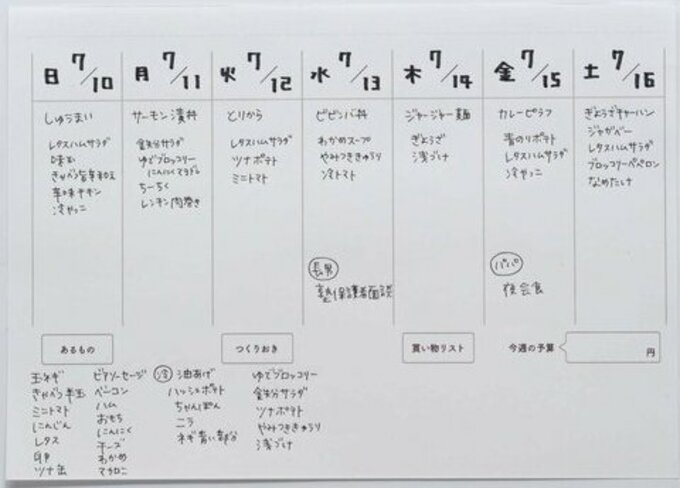 日 7/10
しゅうまい
レタスハムサラダ
味玉
きゃべつ旨辛和え
辛味チキン
冷やっこ
月 7/11
サーモン漬丼
食気分サラダ
ゆでブロッコリー
にんにくマヨドレ
ちーちく
レンチン肉巻き
火 7/12
とりから
レタスハムサラダ
ツナポテト
ミニトマト
水 7/13
ビビンバ丼
わかめスープ
やみつききゅうり
冷トマト
長男
塾保護者面談
木 7/14
ジャージャー麺
ぎょうざ
浅づけ
金 7/15
カレーピラフ
青のりポテト
レタスハムサラダ
冷やっこ
パパ
夜会食
土 7/16
ぎょうざチャーハン
ジャガベー
レタスハムサラダ
ブロッコリーペペロン
なめたけ
あるもの
玉ネギ
きゃべつ半玉
ミニトマト
にんじん
レタス
卵
ツナ缶
ビアソーセージ
ベーコン
ハム
おもち
にんにく
チーズ
わかめ
マカロニ
冷 油あげ
ハッシュポテト
ちゃんぽん
ニラ
ネギ青い部分
つくりおき
ゆでブロッコリー
食気分サラダ
ツナポテト
やみつききゅうり
浅づけ
買い物リスト
今週の予算
円